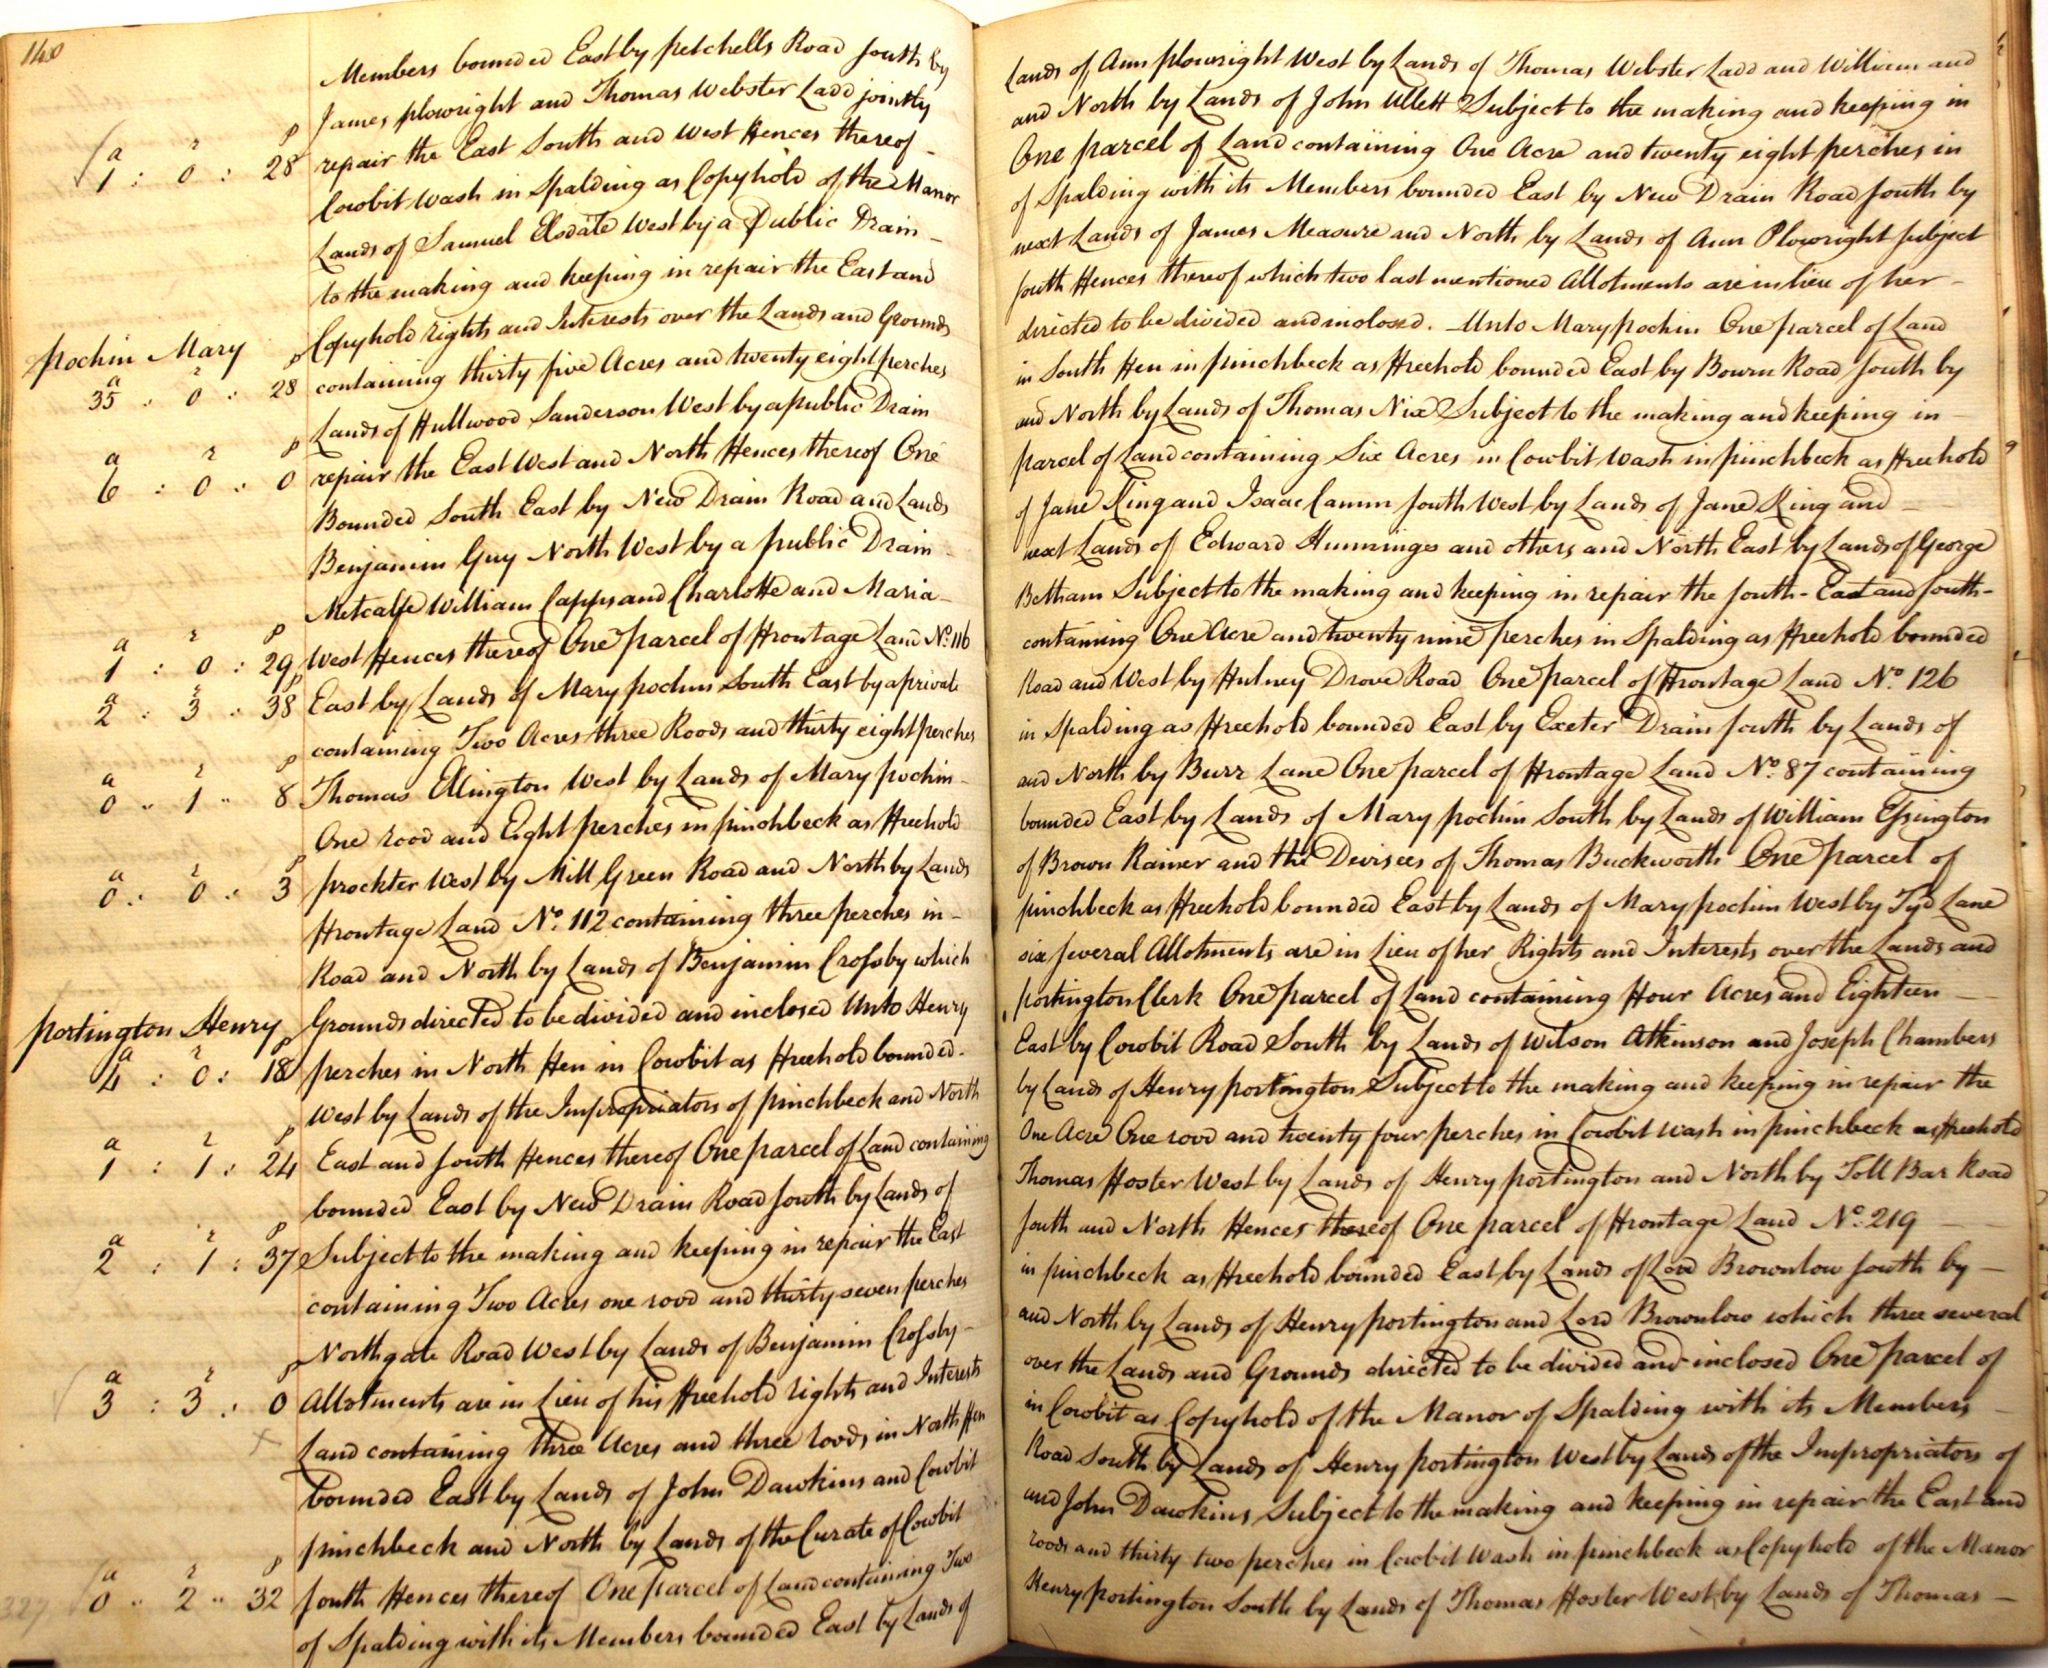 140
Members bounded East by petchells Road South by Lands of Ann plowright West by Lands of Thomas Webster Ladd and William and
James plowright and Thomas Webster Ladd jointly and North by Lands of John Ullett Subject to the making and keeping in
a r p
1 : 0 : 28 repair the East South and West Fences thereof One parcel of Land containing One Acre and twenty eight perches in
Cowbit Wash in Spalding as Copyhold of the Manor of Spalding with its Members bounded East by New Drain Road South by
Lands of Samuel Elsdale West by a Public Drain next Lands of James Measure and North by Lands of Ann Plowright subject
to the making and keeping in repair the East and South Fences thereof which two last mentioned Allotments are in lieu of her
Copyhold rights and Interests over the Lands and Grounds directed to be divided and inclosed. Unto Mary pochin One parcel of Land
pochin Mary
a r p
35 : 0 : 28 containing thirty five Acres and twenty eight perches in South Fen in pinchbeck as Freehold bounded East by Bourn Road South by
Lands of Hullwood Sanderson West by a public Drain and North by Lands of Thomas Nix Subject to the making and keeping in
a r p
6 : 0 : 0 repair the East West and North Fences thereof One parcel of Land containing Six Acres in Cowbit Wash in pinchbeck as Freehold
Bounded South East by New Drain Road and Lands of Jane King and Isaac Camm South West by Lands of Jane King and
Benjamin Guy North West by a public Drain next Lands of Edward Hunnings and others and North East by Lands of George
Metcalfe William Capps and Charlotte and Maria Betham Subject to the making and keeping in repair the South - East and South-
a r p
1 : 0 : 29 West Fences thereof One parcel of Frontage Land No. 116 containing One Acre and twenty nine perches in Spalding as Freehold bounded
East by Lands of Mary pochin South East by a private Road and West by Hulney Drove Road One parcel of Frontage Land No. 126
a r p
2 : 3 : 38 containing Two Acres three Roods and thirty eight perches in Spalding as Freehold bounded East by Exeter Drain South by Lands of
Thomas Ellington West by Lands of Mary pochin and North by Burr Lane One parcel of Frontage Land No. 87 containing
a r p
0 .. 1 .. 8 One rood and Eight perches in pinchbeck as Freehold bounded East by Lands of Mary pochin South by Lands of William Essington
prockter West by Mill Green Road and North by Lands of Brown Rainer and the Devisees of Thomas Buckworth One parcel of
a r p
0 .. 0 : 3 Frontage Land No. 112 containing three perches in pinchbeck as Freehold bounded East by Lands of Mary pochin West by Tyd Lane
Road and North by Lands of Benjamin Crossby which six several Allotments are in Lieu of her Rights and Interests over the Lands and
Grounds directed to be divided and inclosed Unto Henry portington Clerk One parcel of Land containing Four Acres and Eighteen
portington Henry
a r p
4 : 0 : 18 perches in North Fen in Cowbit as Freehold bounded East by Cowbit Road South by Lands of Wilson Atkinson and Joseph Chambers
West by Lands of the Impropriators of pinchbeck and North by Lands of Henry portington Subject to the making and keeping in repair the
a r p
1 : 1 : 24 East and South Fences thereof One parcel of Land containing One Acre One rood and twenty four perches in Cowbit Wash in pinchbeck as Freehold
bounded East by New Drain Road South by Lands of Thomas Foster West by Lands of Henry portington and North by Toll Bar Road
Subject to the making and keeping in repair the East South and North Fences thereof One parcel of Frontage Land No. 219
a r p
2 : 1 : 37 containing Two Acres one rood and thirty seven perches in pinchbeck as Freehold bounded East by Lands of Lord Brownlow South by
Northgate Road West by Lands of Benjamin Crossby and North by Lands of Henry portington and Lord Brownlow which three several
Allotments are in Lieu of his Freehold rights and Interests over the Lands and Grounds directed to be divided and inclosed One parcel of
a r p
3 : 3 : 0 Land containing three Acres and three roods in North Fen in Cowbit as Copyhold of the Manor of Spalding with its Members
bounded East by Lands of John Dawkins and Cowbit Road South by Lands of Henry portington West by Lands of the Impropriators of
pinchbeck and North by Lands of the Curate of Cowbit and John Dawkins Subject to the making and keeping in repair the East and
a r p
0 .. 2 .. 32 South Fences thereof One parcel of Land containing Two roods and thirty two perches in Cowbit Wash in pinchbeck as Copyhold of the Manor
327
of Spalding with its Members bounded East by Lands of Henry portington South by Lands of Thomas Foster West by Lands of Thomas